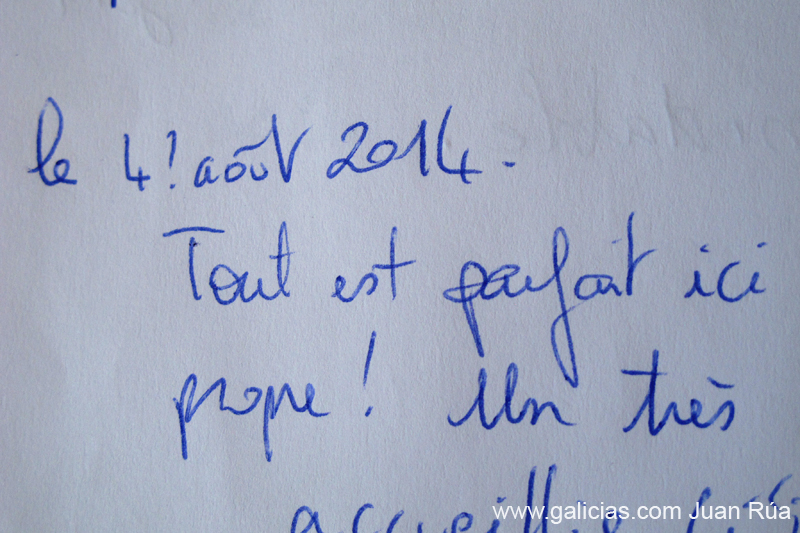 le 4! août 2014.
Tout est parfait ici
propre! Un très
accueillie
www.galicias.com Juan Rúa